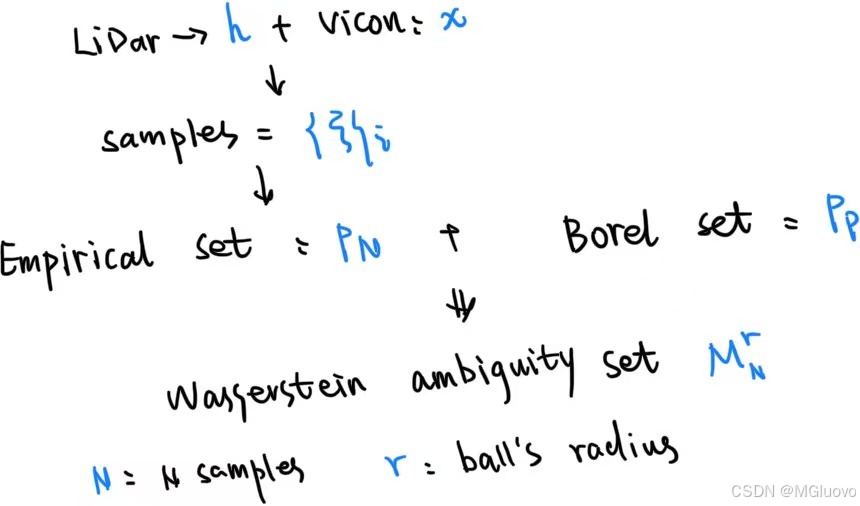 LiDar → h + Vicon: x
↓
samples = {ξ}i
↓
Empirical set : PN + Borel set = Pp
⇓
Wasserstein ambiguity set M_N^r
N = N samples r : ball's radius
CSDN @MGluovo